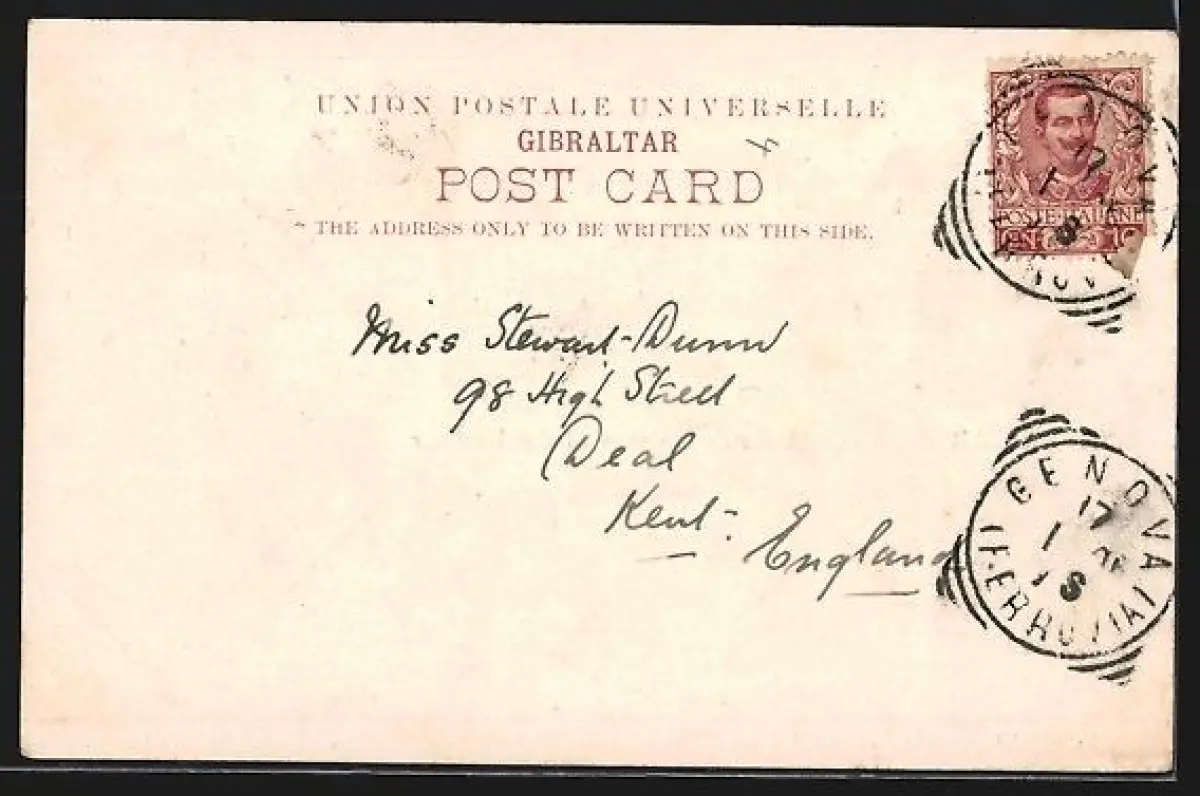 UNION POSTALE UNIVERSELLE
GIBRALTAR
4
POST CARD
THE ADDRESS ONLY TO BE WRITTEN ON THIS SIDE.
POSTE ITALIANE
CEN 10
Miss Stewart-Dunn
98 High Street
Deal
Kent-
England
GENOVA
17
1
8